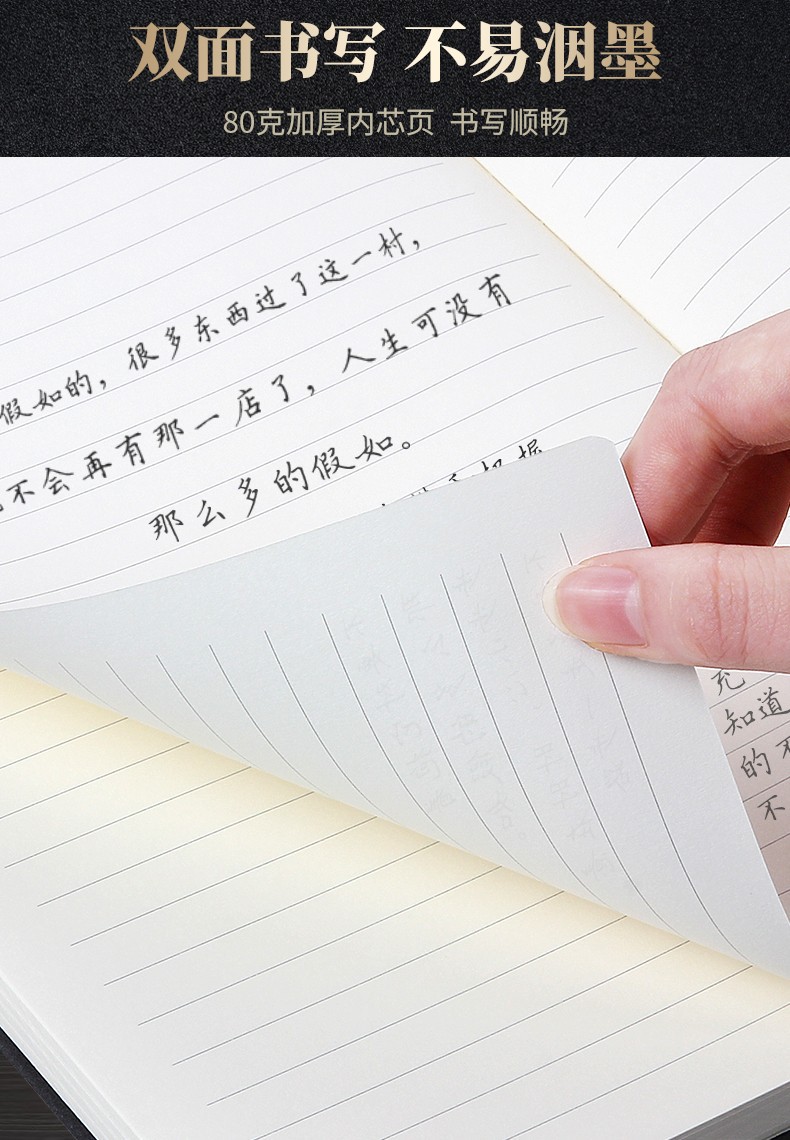 双面书写 不易洇墨
80克加厚内芯页 书写顺畅
假如的，很多东西过了这一村，
不会再有那一店了，人生可没有
那么多的假如。
把握
充
知道
的不
不